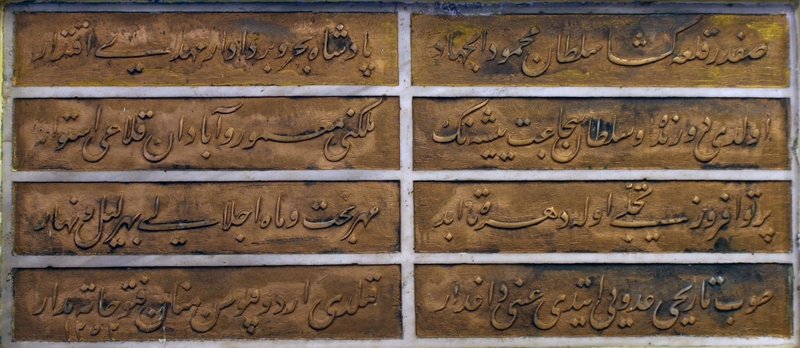 صفدر قلعه كشا سلطان محمود الجهاد پادشاه بحر و بر دادار مهدی اقتدار
اولدی او سلطان شجاعت پیشه نك ملكنی معمور و آبادان قلاعی استوار
پرتو افروز تجلی اوله دهره تا ابد مهر بخت و ماه اجلالی بهر لیل و نهار
تاریخی عدویی ایتدی داغدار قیلدی اردو قپوسن فتوحاته مدار